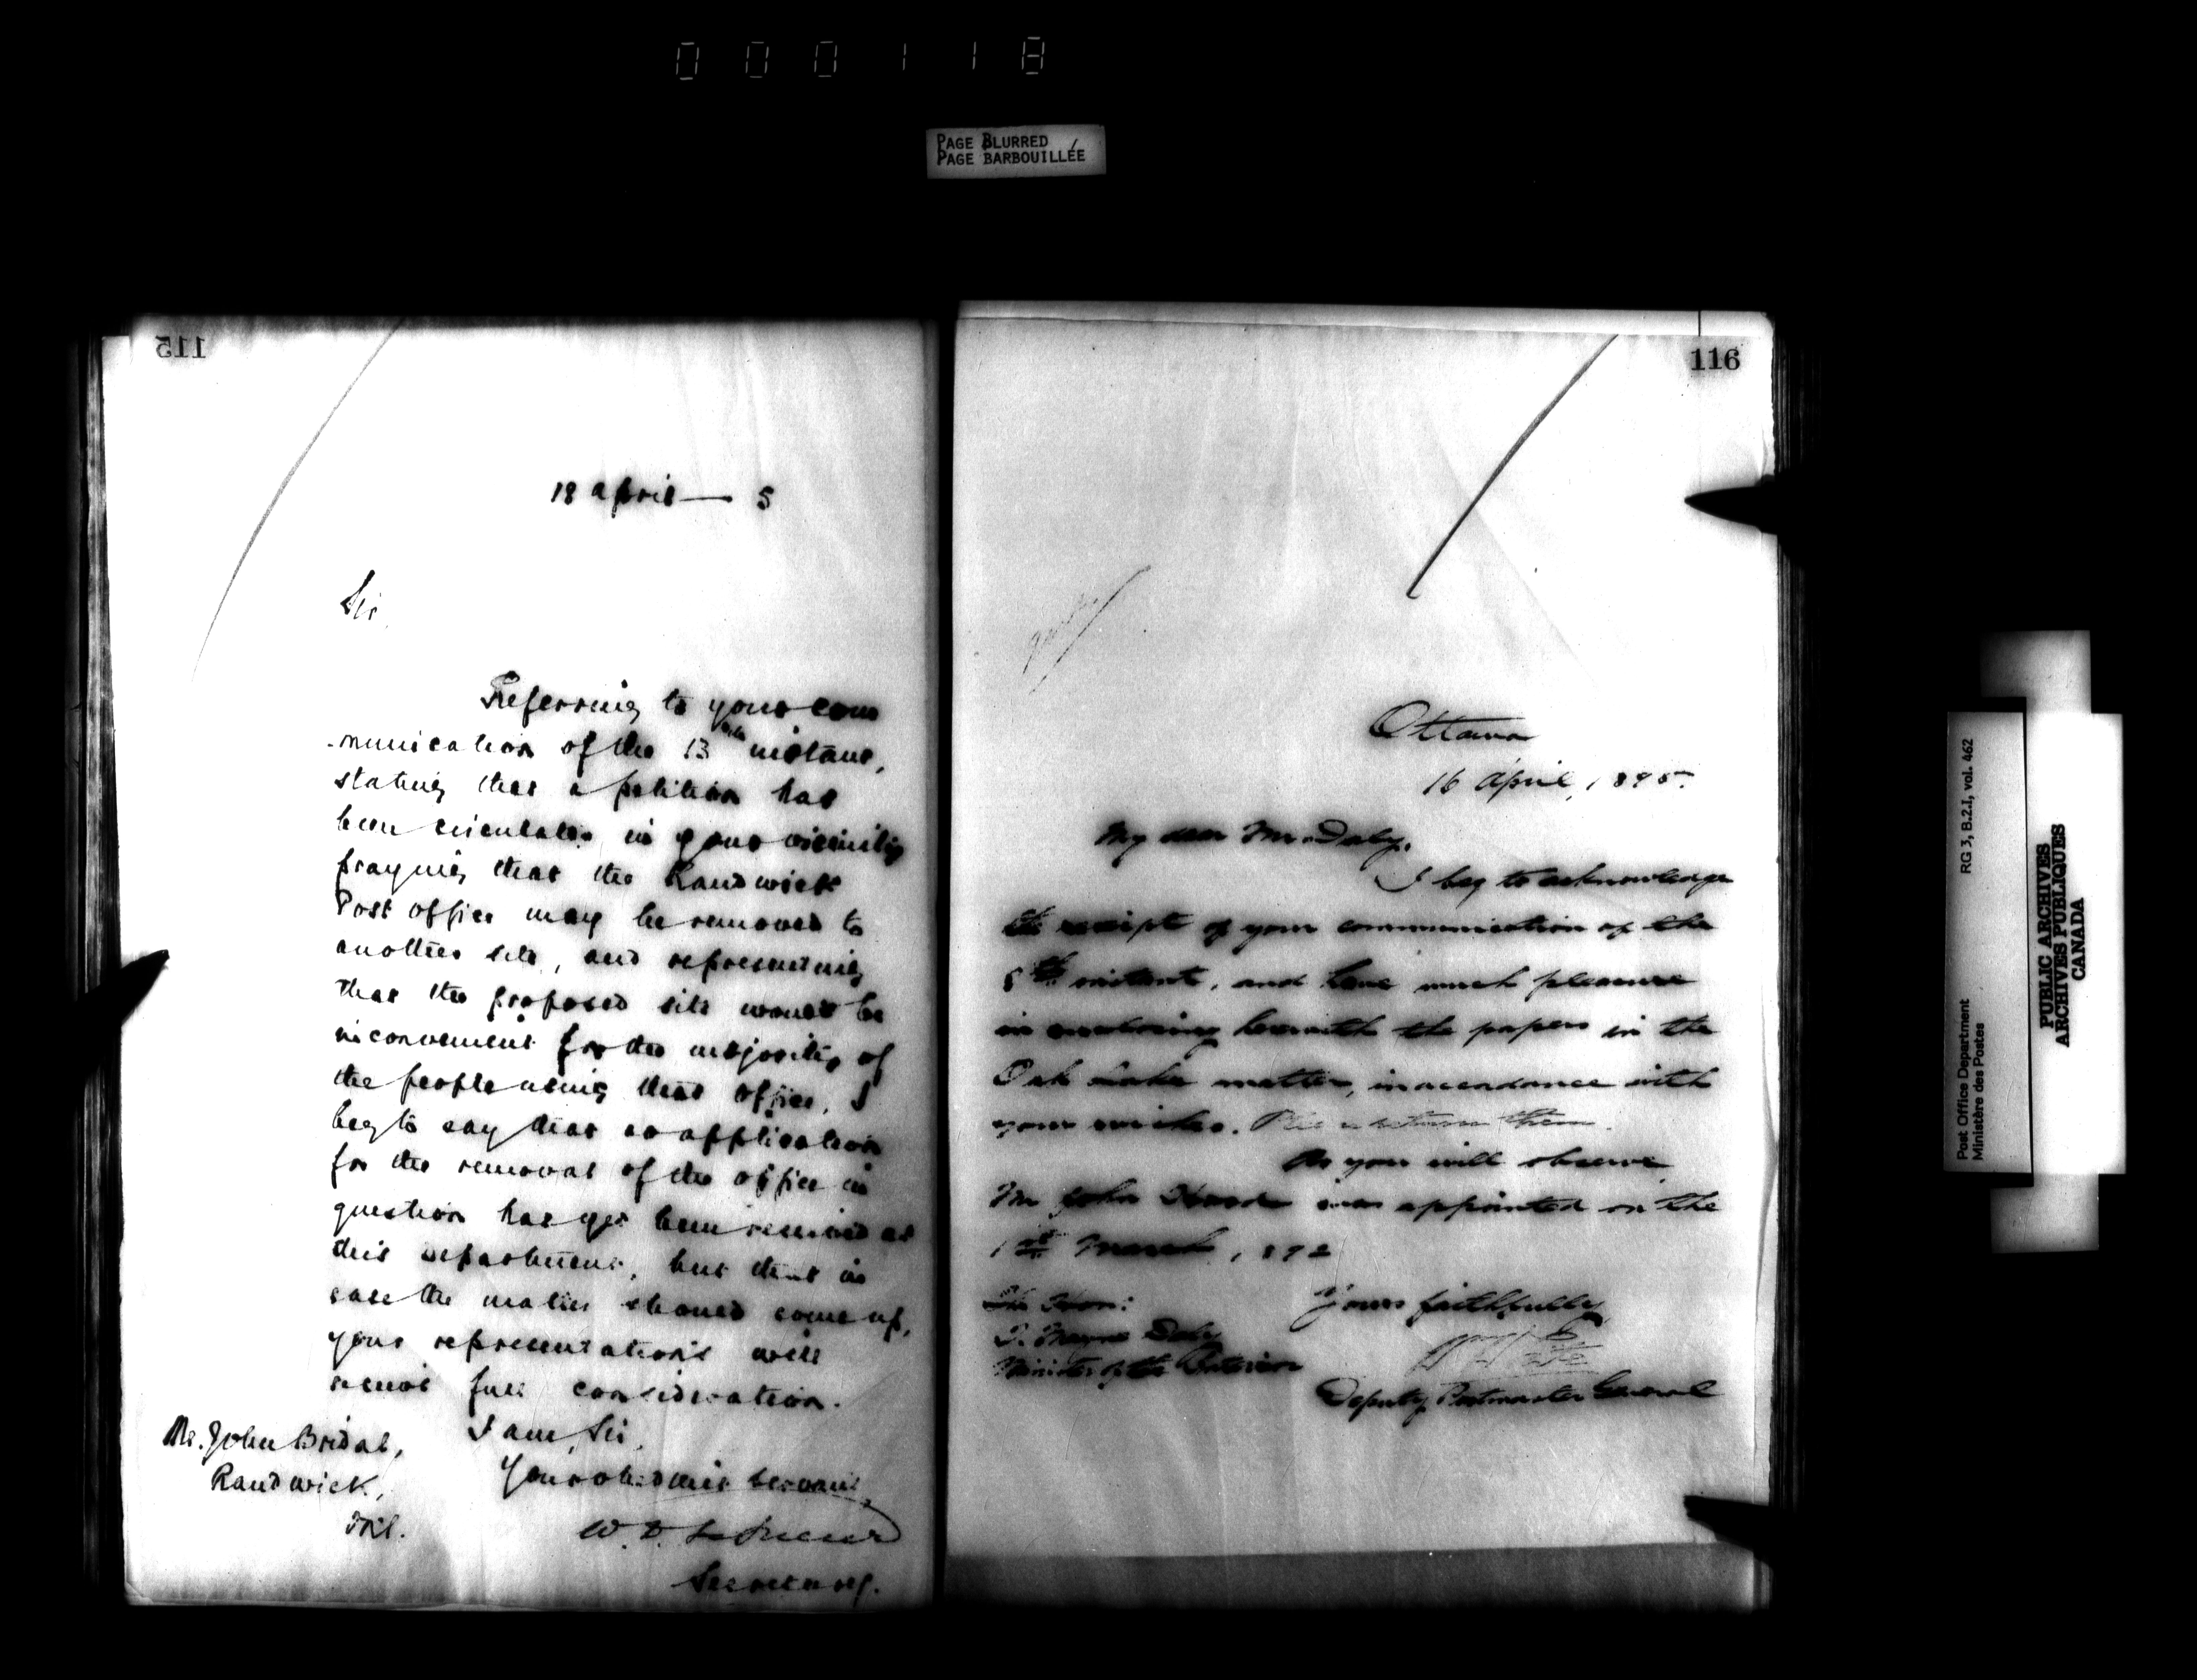 000118
PAGE BLURRED
PAGE BARBOUILLÉE
115
18 April — 5
Sir,
Referring to your com
-munication of the 13th instant,
stating that a petition has
been circulated in your vicinity
praying that the Randwick
Post office may be removed to
another site, and representing
that the proposed site would be
inconvenient for the majority of
the people using that office, I
beg to say that no application
for the removal of the office in
question has yet been received at
this Department, but that in
case the matter should come up,
your representations will
receive full consideration.
I am, Sir,
Your obedient servant,
W. D. LeSueur
Secretary.
Mr. John Bridal,
Randwick,
116
Ottawa
16 April, 1895.
My dear Mr. Daly,
I beg to acknowledge
the receipt of your communication of the
8th instant, and have much pleasure
in enclosing herewith the papers in the
Oak Lake matter, in accordance with
your wishes. return them.
As you will observe
Mr John was appointed on the
1st March, 1892
Yours faithfully,
Deputy Postmaster General
The Hon:
T. Mayne Daly
Minister of the Interior
Post Office Department
Ministère des Postes
RG 3, B.2.I, vol. 462
PUBLIC ARCHIVES
ARCHIVES PUBLIQUES
CANADA